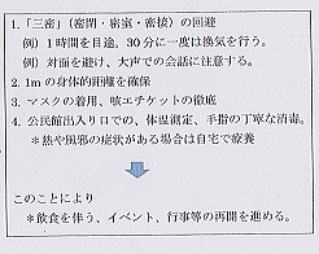 1.「三密」(密閉・密室・密接)の回避
例)1時間を目途。30分に一度は換気を行う。
例)対面を避け、大声での会話に注意する。
2. 1mの身体的距離を確保
3. マスクの着用、咳エチケットの徹底
4. 公民館出入り口での、体温測定、手指の丁寧な消毒。
＊熱や風邪の症状がある場合は自宅で療養
このことにより
＊飲食を伴う、イベント、行事等の再開を進める。